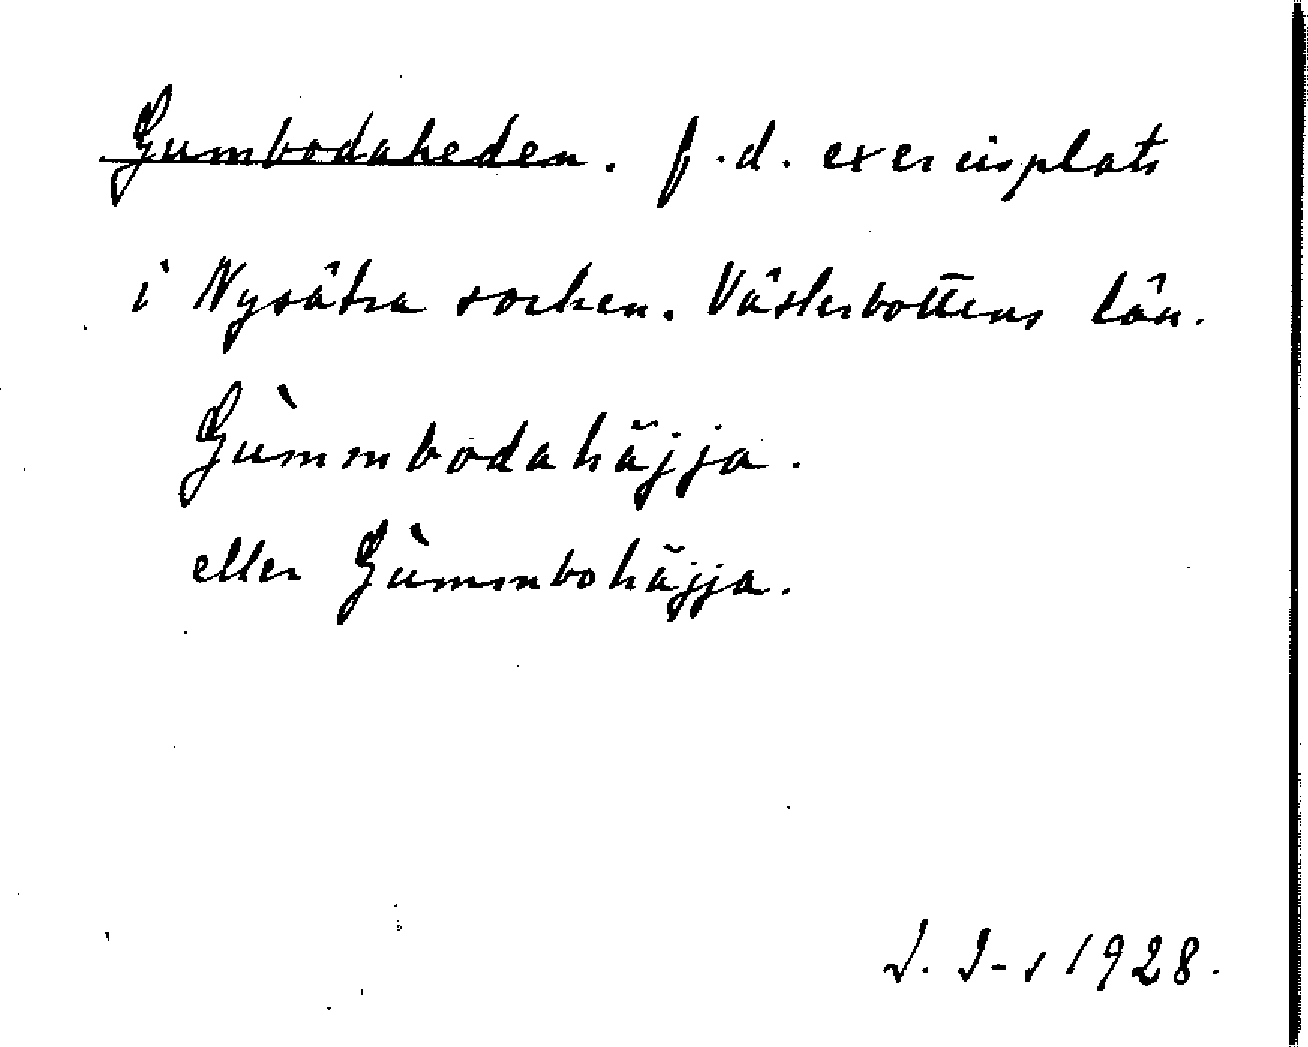 Gumbodaheden. f.d. exercisplats
i Nysätra socken. Västerbottens län.
Gùmmbodahäjja.
eller Gùmmbohäjja.
J. J-s 1928.